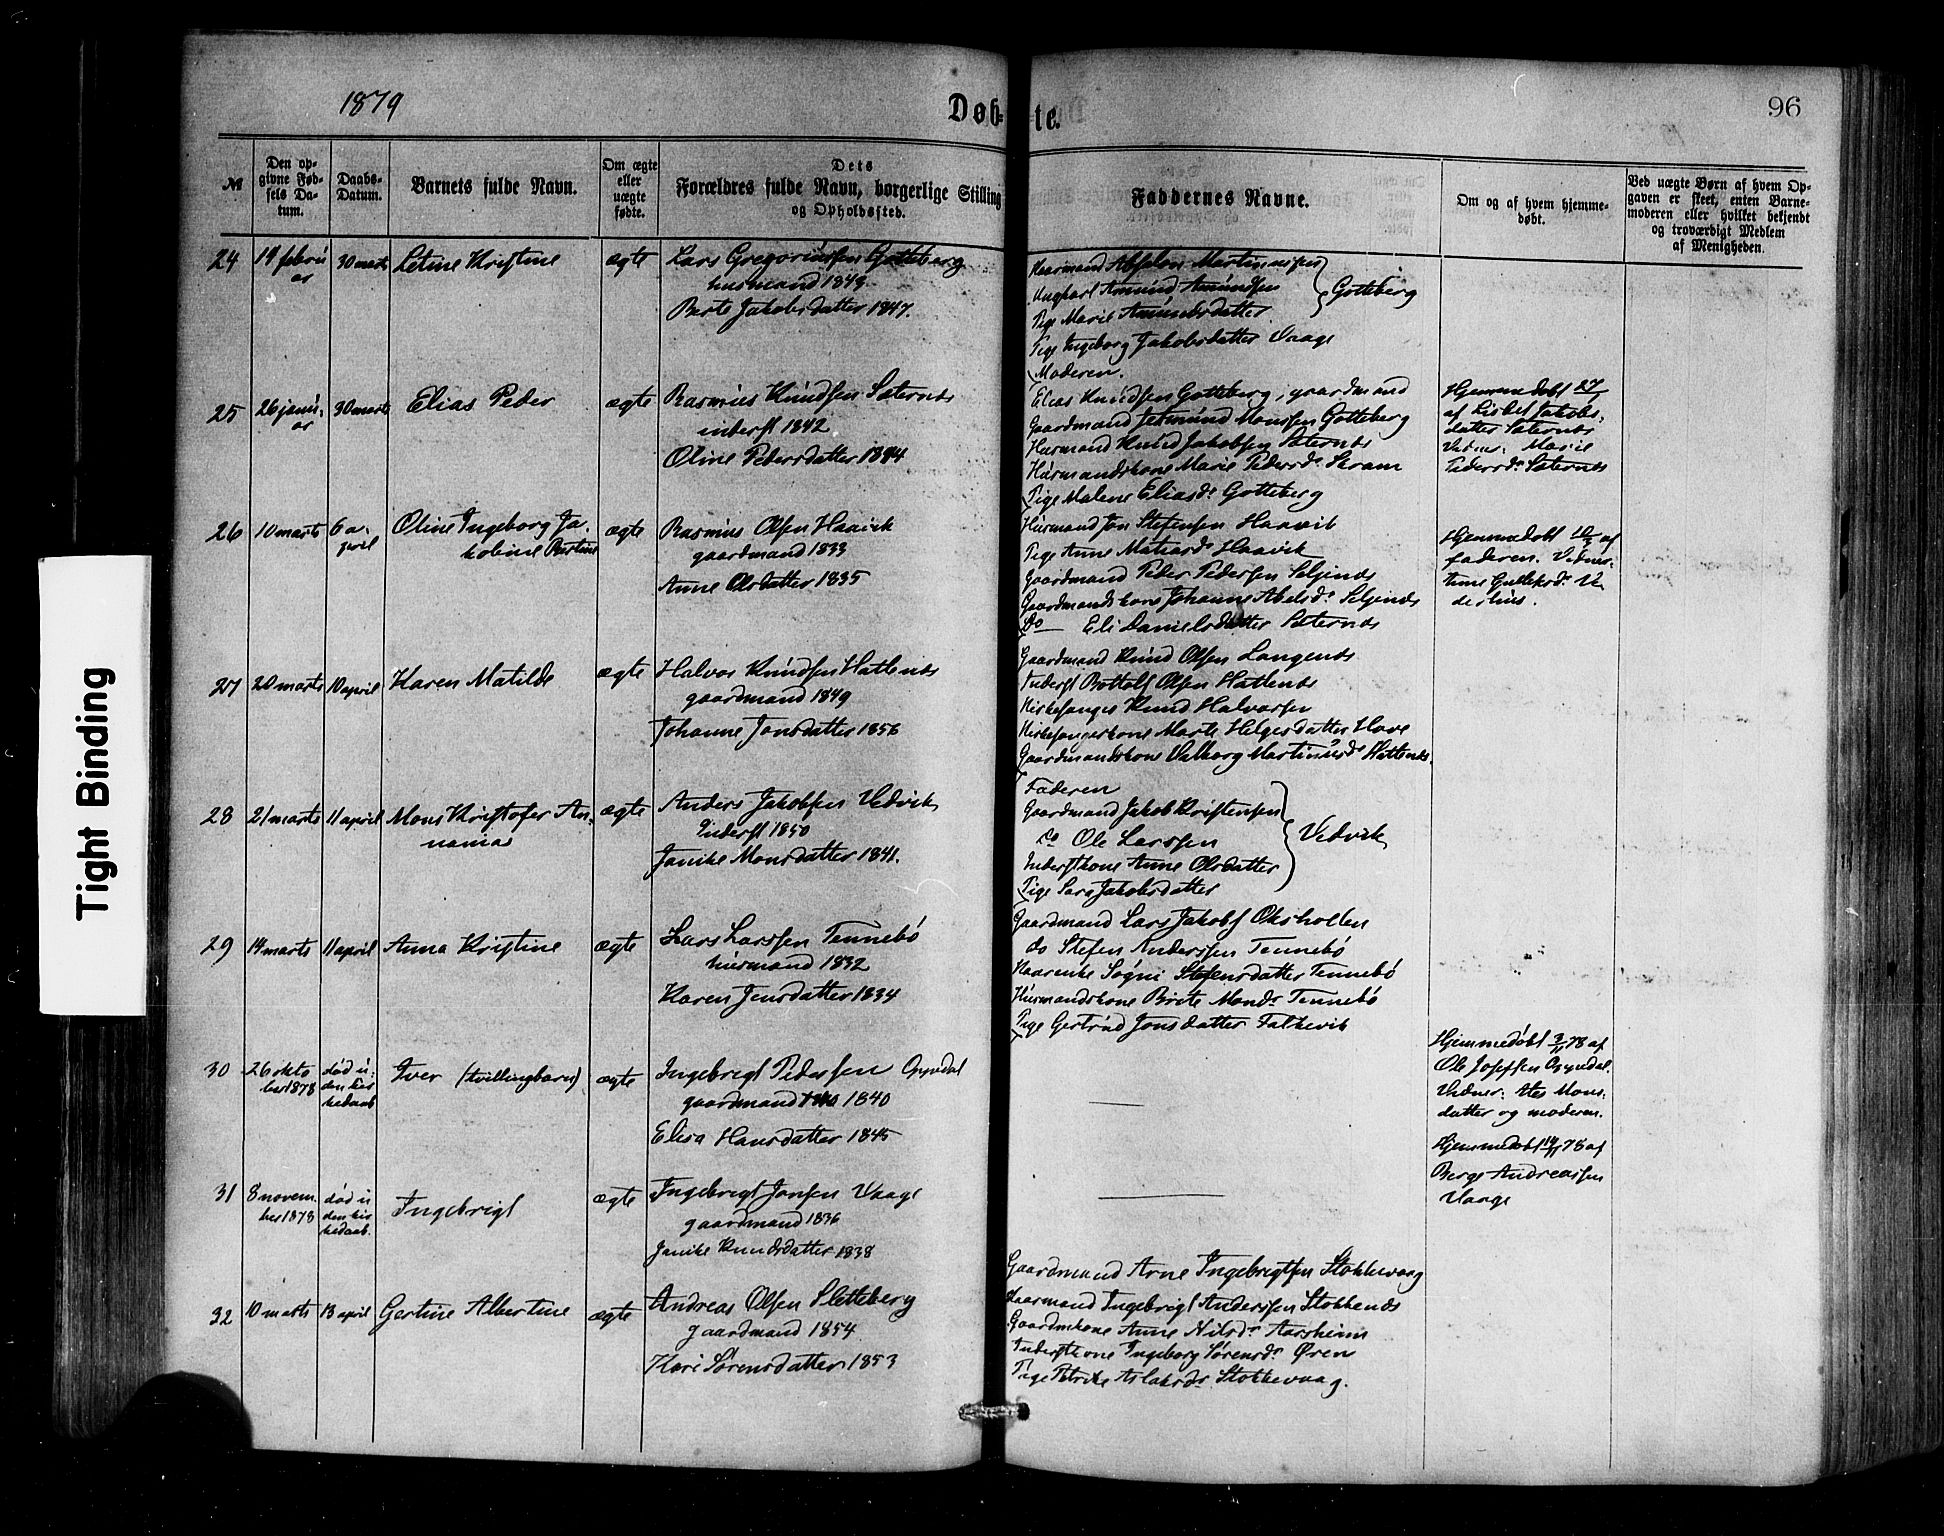 1879
Døb-
te.
96
№
Den op-
givne Fød-
sels Da-
tum.
Daabs-
Datum.
Barnets fulde Navn.
Om ægte
eller
uægte
fødte.
Dets
Forældres fulde Navn, borgerlige Stilling
og Opholdssted.
Faddernes Navne.
Om og af hvem hjemme-
døbt.
Ved uægte Børn af hvem Op-
gaven er skeet, enten Barne-
moderen eller hvilket bekjendt
og troværdigt Medlem
af Menigheden.
24
19 febru
ar
30 marts
Letine Kristine
ægte
Lars Gregoriussen Gotteberg
husmand 1849
Berte Jakobsdatter 1847.
Kaarmand Absalon Martinussen
Ungkarl Amund Amundsen
Gotteberg
Pige Marie Amundsdatter
Pige Ingeborg Jakobsdatter Vaage
Moderen.
25
26 janu-
ar
30 marts
Elias Peder
ægte
Rasmus Knudsen Sæternes
inderst 1842
Oline Pedersdatter 1844
Elias Knudsen Gotteberg, gaardmand
Gaardmand Jetmund Monssen Gotteberg
Husmand Knud Jakobsen Sæternes
Husmandskone Marie Pedersd. Skram
Pige Malene Eliasd. Gotteberg
Hjemmedøbt 27/1
af Lisbet Jakobs-
datter Sæternes
Vidner: Marie
Pedersd. Sæternes
26
10 marts
6 a-
pril
Oline Ingeborg Ja-
kobine Bastine
ægte
Rasmus Olsen Haavik
gaardmand 1833
Anne Olsdatter 1835
Husmand Jon Stefensen Haavik
Pige Anne Matiasd. Haavik
Gaardmand Peder Pedersen Seljenes
Gaardmandskone Johanne Abelsd. Seljenes
Do Eli Danielsdatter Sæternes
Hjemmedøbt 10/3 af
faderen. Vidner:
Anne Gullaksd. Ve-
dershus.
27
20 marts
10 april
Karen Matilde
ægte
Halvor Knudsen Hatlenes
gaardmand 1849
Johanne Jonsdatter 1856
Gaardmand Knud Olsen Langenes
Inderst Bottolf Olsen Hatlenes
Kirkesanger Knud Halvorsen
Kirkesangerkone Marte Helgesdatter Hove
Gaardmandskone Valborg Martinusd. Hatlenes.
28
21 marts
11 april
Mons Kristofer An-
nanias
ægte
Anders Jakobsen Vedvik
Inderst 1850
Janike Monsdatter 1841.
Faderen
Gaardmand Jakob Kristensen
Do Ole Larssen
Vedvik
Inderstkone Anne Olsdatter
Pige Sara Jakobsdatter
29
14 marts
11 april
Anna Kristine
ægte
Lars Larssen Tennebø
husmand 1832
Karen Jensdatter 1834
Gaardmand Lars Jakobs Oksholen
do Stefen Anderssen Tennebø
Kaarenke Søgni Stefensdatter Tennebø
Husmandskone Brite Monsd. Tennebø
Pige Gertrud Jonsdatter Falkevik
30
26 okto
ber 1878
død u-
den kir
kedaab
Iver (tvillingbarn)
ægte
Ingebrigt Pedersen Opedal
gaardmand 1840
Elisa Hansdatter 1845
Hjemmedøbt 3/11 78 af
Ole Josefsen Opedal.
Vidner: Ates Mons-
datter og moderen.
31
8 novem-
ber 1878
død u
den kir
kedaab.
Ingebrigt
ægte
Ingebrigt Jonsen Vaage
gaardmand 1836
Janike Knudsdatter 1838
Hjemmedøbt 14/11 78 af
Berge Andreassen
Vaage
32
10 marts
13 april
Gertine Albertine
ægte
Andreas Olsen Sletteberg
gaardmand 1854
Kari Sørensdatter 1853
Gaardmand Arne Ingebrigtsen Stokkevaag
Kaarmand Ingebrigt Anderssen Stokkenes
Gaardmkone Anne Nilsd. Aarsheim
Inderstkone Ingeborg Sørensd. Øren
Pige Petrike Aslaksd. Stokkevaag.
Tight Binding